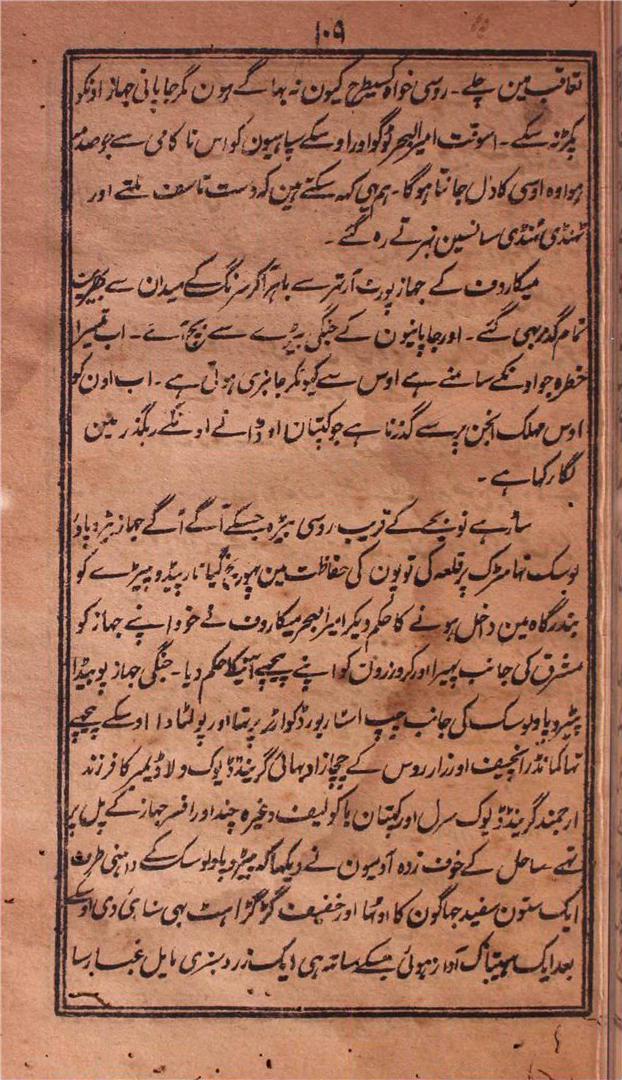 ۱۰۹
تعاقب مین چلے۔ روسی خواہ کسیطرح کیون نہ بہاگے ہون مگر جاپانی جہاز اونکو
پکڑ نہ سکے۔ اسوقت امیرالبحر ٹوگو اور اوسکے سپاہیون کو اس ناکامی سے جو صدمہ
ہوا وہ اوسی کا دل جانتا ہوگا۔ ہم یہی کہہ سکتے ہین کہ دست تاسف ملتے اور
ٹھنڈی ٹھنڈی سانسین بہرتے رہ گئے۔
میکاروف کے جہاز پورٹ آرتھر سے باہر آکر سرنگ کے میدان سے بخیریت
تمام گذر بہی گئے۔ اور جاپانیون کے جنگی بیڑے سے بچ آے۔ اب تیسرا
خطرہ جو اونکے سامنے ہے اوس سے کیونکر جانبری ہوتی ہے۔ اب اون کو
اوس مہلک انجن پر سے گذرنا ہے جو کپتان اوڈا نے اونکے رہگذر مین
لگا رکہا ہے۔
ساڑہے نو بجے کے قریب روسی بیڑہ جسکے آگے آگے جہاز پٹروپاو
لوسک تہا سڑک پر قلعہ کی توپون کی حفاظت مین پہونچ گیا تارپیڈو بیڑے کو
بندرگاہ مین داخل ہونے کا حکم دیکر امیرالبحر میکاروف نے خود اپنے جہاز کو
مشرق کی جانب پہیرا اور کروزرون کو اپنے پیچہے آنیکا حکم دیا۔ جنگی جہاز پوبیڈا
پٹروپاولوسک کی جانب چپ اسٹاربورڈ کوارٹر پر تہا اور پولٹاوا اوسکے پیچہے
تہا کمانڈر انچیف اور زار روس کے چچازاد بہائی گرینڈ ڈیوک ولاڈیمیر کا فرزند
ارجمند گرینڈ ڈیوک سرل اور کپتان یاکولیف وغیرہ چند اور افسر جہاز کے پل پر
تہے ساحل کے خوف زدہ آدمیون نے دیکہا کہ پٹروپاولوسک کے داہنی طرف
ایک ستون سفید جہاگون کا اوٹہا اور خفیف گڑگڑاہٹ بہی سنائی دی اوسکے
بعد ایک ہیبتناک آواز ہوئی جسکے ساتہ ہی ایک زرد سبزی مایل غبار سا